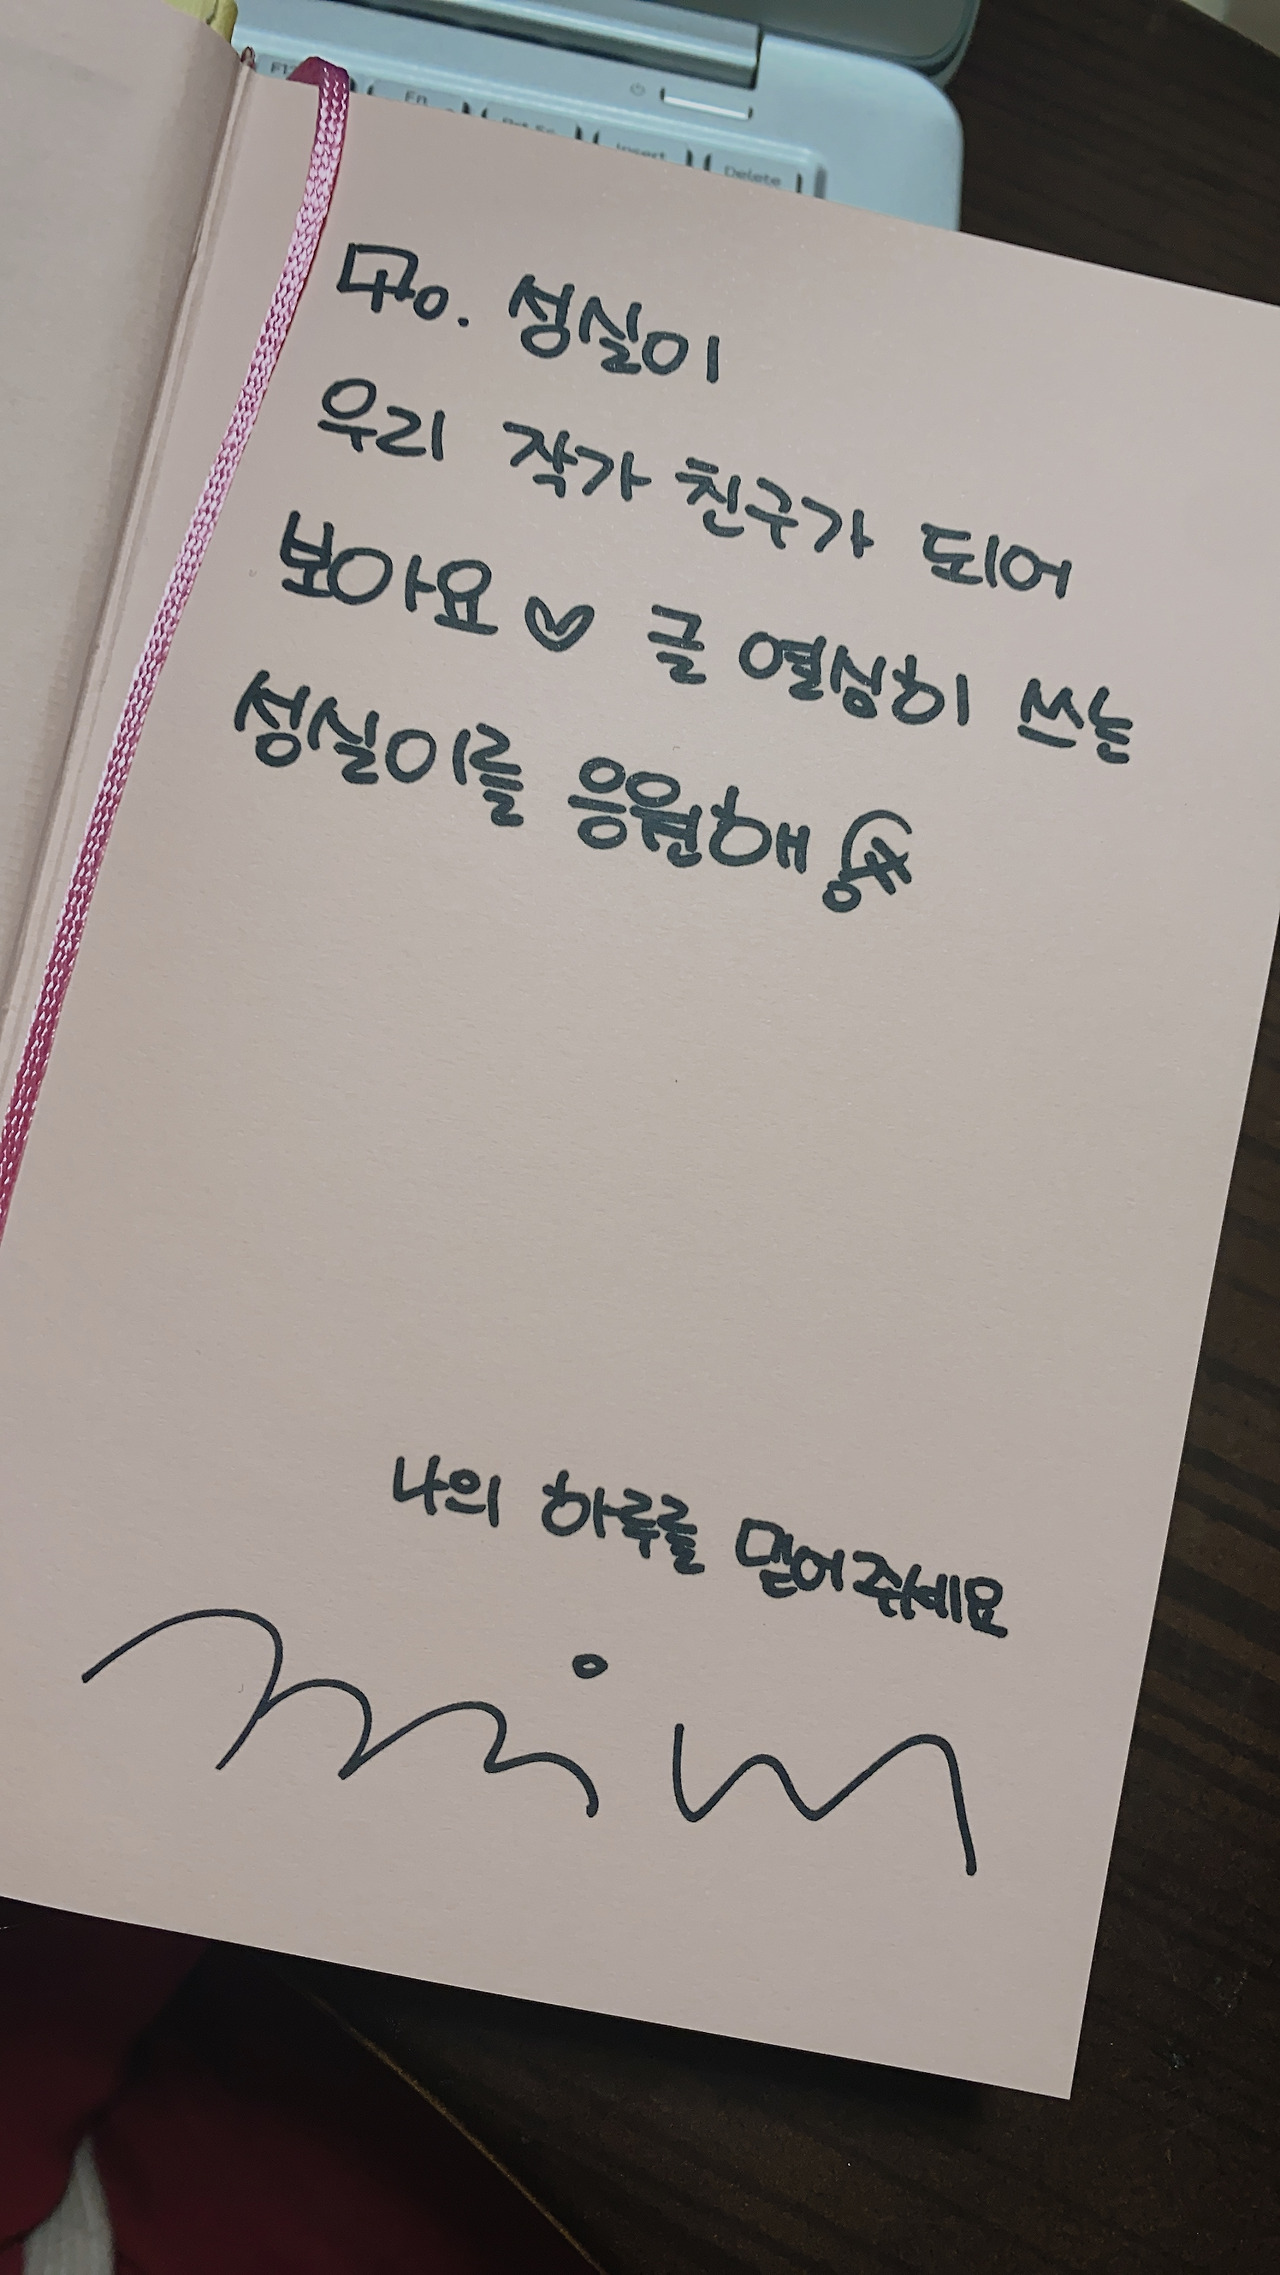 To. 성실이
우리 작가 친구가 되어
보아요♡ 글 열심히 쓰는
성실이를 응원해
나의 하루를 믿어주세요
Insert Delete